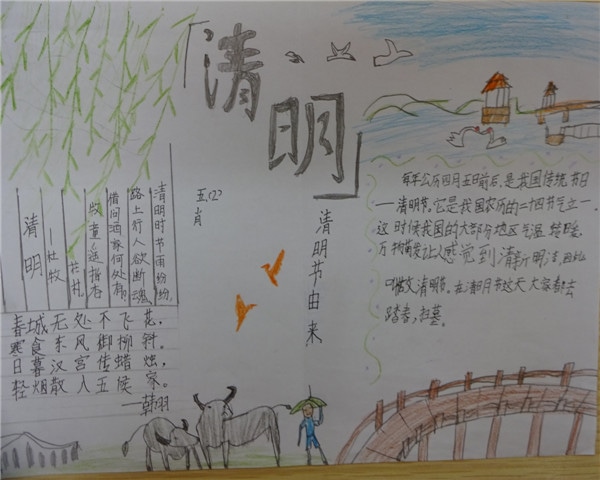 「清明」
清明时节雨纷纷,
路上行人欲断魂
借问酒家何处有,
牧童遥指杏
花村。
—杜牧
清明
五(2)
肖
春城无处不飞花,
寒食东风御柳斜。
日暮汉宫传蜡烛,
轻烟散入五侯家。
—韩翃
清明节由来
每年公历四月五日前后,是我国传统节日
—清明节,它是我国农历的二十四节气之一,
这时候我国的大部分地区气温转暖,
万物萌发让人感觉到清新明洁,因此
叫做清明节。在清明节这天大家都去
踏青,扫墓。